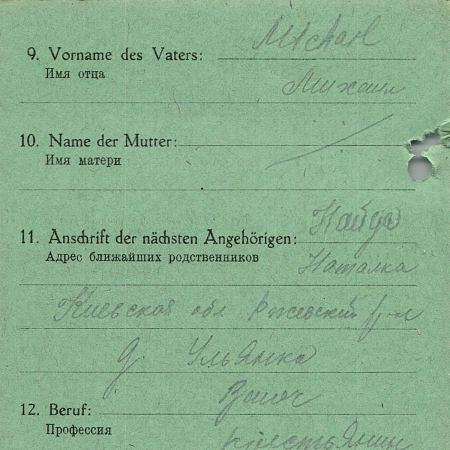 9. Vorname des Vaters: Michael
Имя отца
Михаил
10. Name der Mutter:
Имя матери
11. Anschrift der nächsten Angehörigen: Найда
Адрес ближайших родственников Наталка
Киевской обл Ржевский р-н
д. Ульянка
12. Beruf: Bauer
Профессия крестьянин